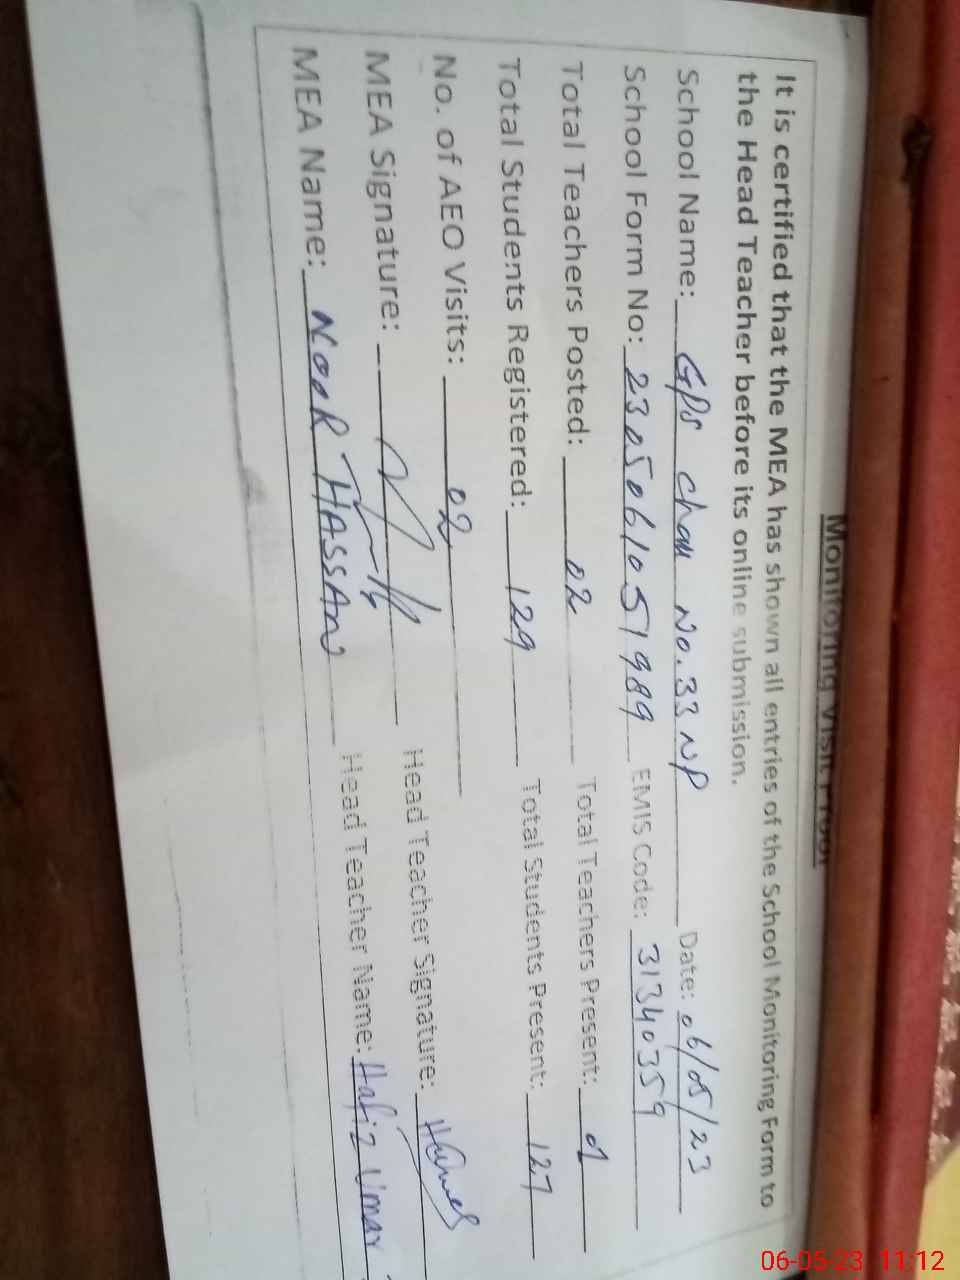 Monitoring Visit Proof
It is certified that the MEA has shown all entries of the School Monitoring Form to
the Head Teacher before its online submission.
School Name: GPS chak No.33 NP Date: 06/05/23
School Form No: 2305061051989 EMIS Code: 31340359
Total Teachers Posted: 02 Total Teachers Present: 01
Total Students Registered: 129 Total Students Present: 127
No. of AEO Visits: 02
MEA Signature: Head Teacher Signature:
MEA Name: NOOR HASSAN Head Teacher Name: Hafiz Umar
06-05-23 11:12